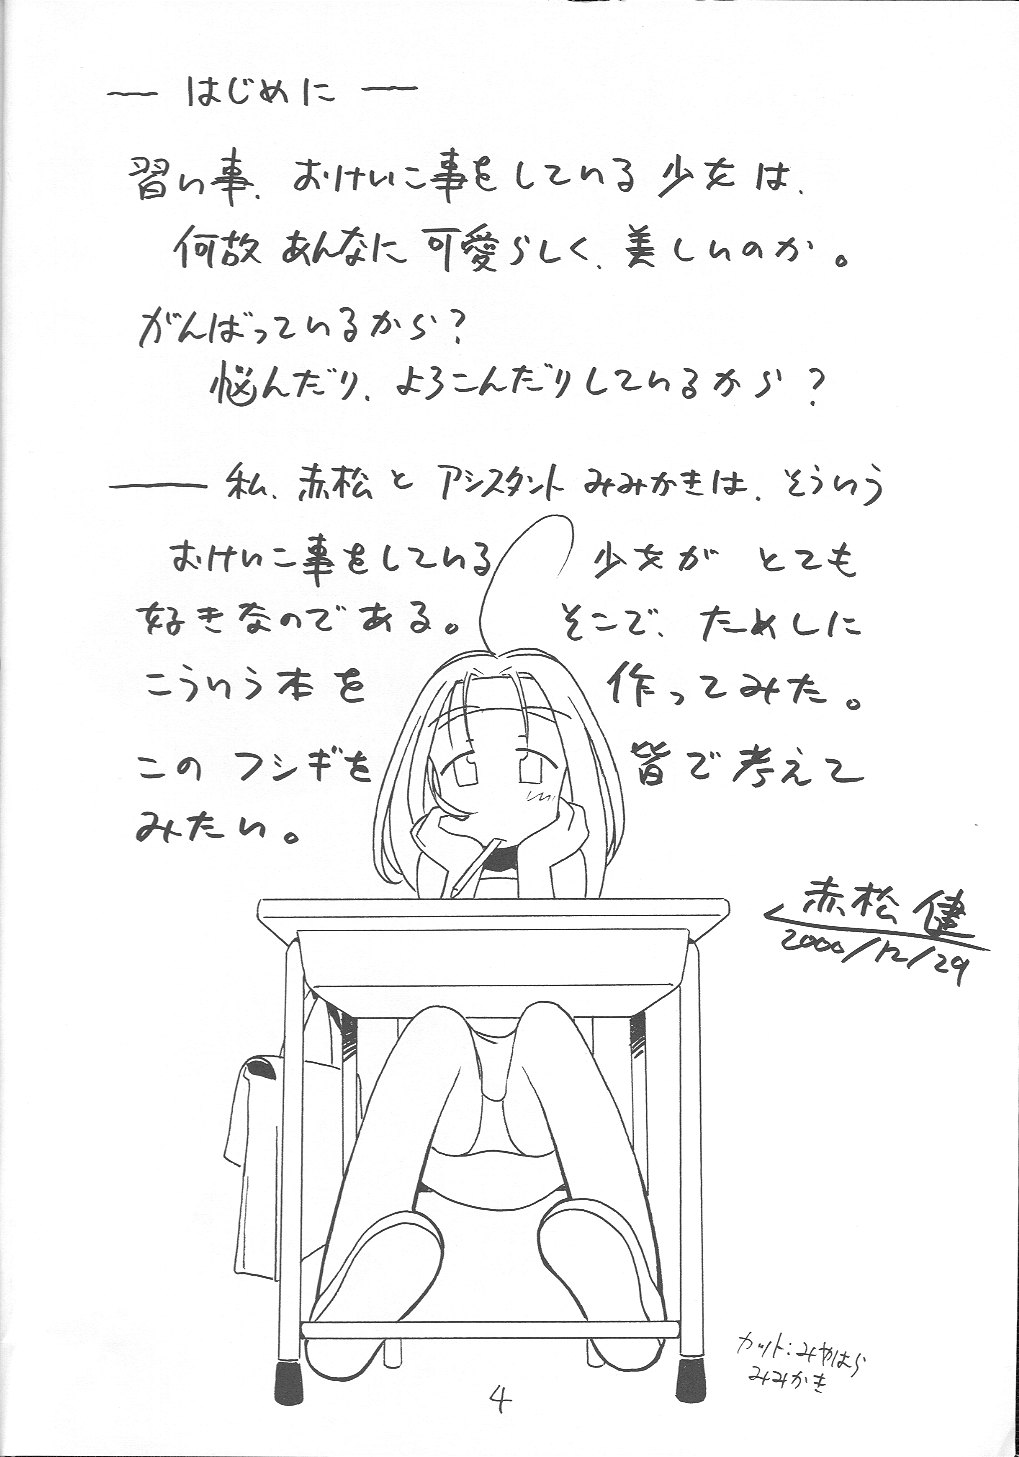 ― はじめに ―
習い事、おけいこ事をしている少女は、
何故あんなに可愛らしく、美しいのか。
がんばっているから？
悩んだり、よろこんだりしているから？
―― 私、赤松と アシスタント みみかきは、そういう
おけいこ事をしている 少女が とても
好きなのである。 そこで、ためしに
こういう本を 作ってみた。
この フシギを 皆で考えて
みたい。
赤松健
2000/12/29
カット：みやはら
みみかき
4